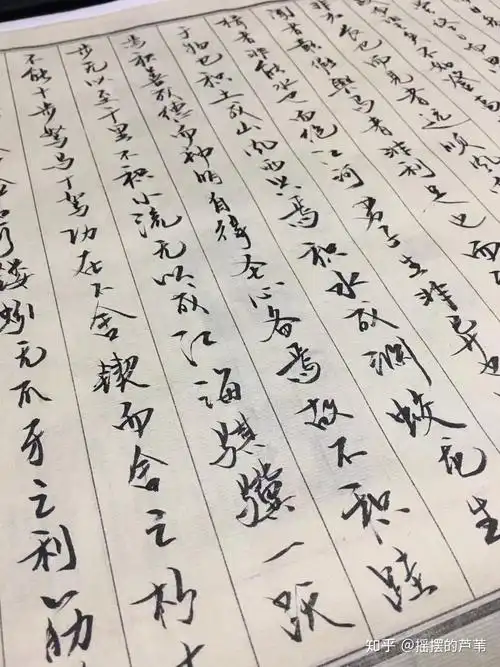 矣不如登高
长也而见者远顺风
闻者彰假舆马者非利足也而
楫者非能水也而绝江河君子生非异也
于物也积土成山风雨兴焉积水成渊蛟龙生
焉积善成德而神明自得圣心备焉故不积跬
步无以至千里不积小流无以成江海骐骥一跃
不能十步驽马十驾功在不舍锲而舍之朽
蚓无爪牙之利筋
知乎 @摇摆的芦苇